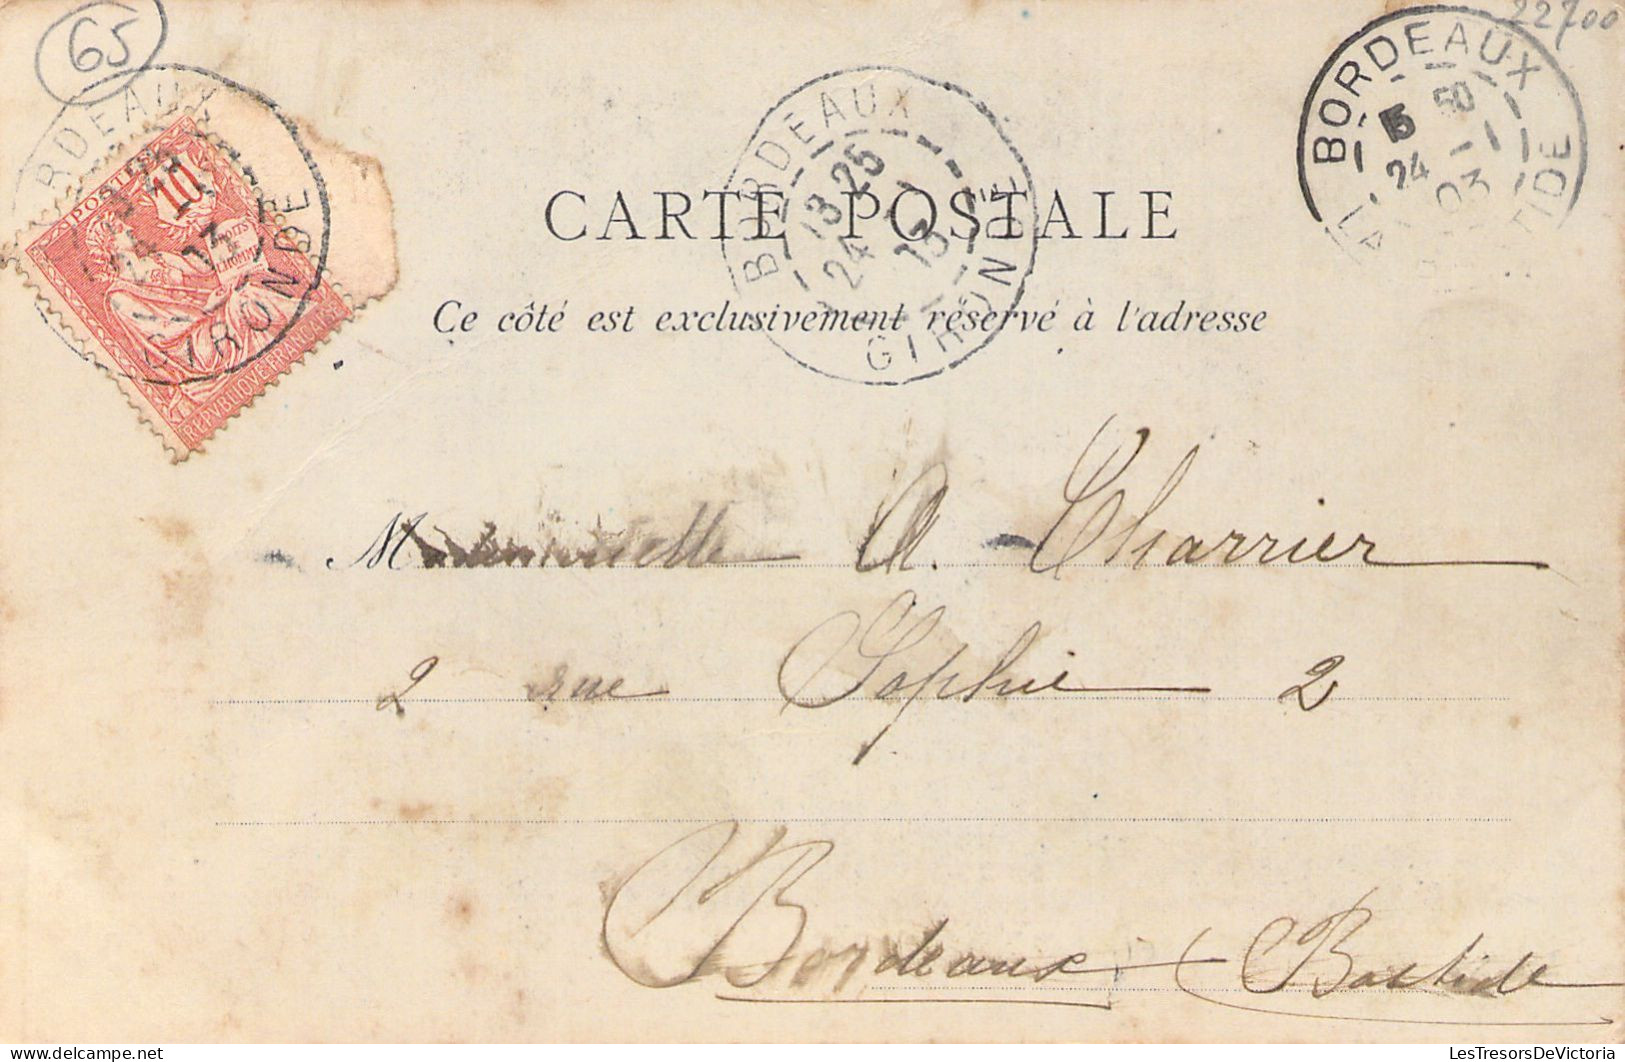 65
22700
BORDEAUX
GIRONDE
POSTES
10
DROITS
DE
L'HOMME
REPVBLIQVE FRANÇAISE
BORDEAUX
13 25
24
GIRONDE
BORDEAUX
5 50
24
03
CARTE POSTALE
Ce côté est exclusivement réservé à l'adresse
Mademoiselle A. Charrier
2 rue Sophie 2
Bordeaux Bastide
LesTresorsDeVictoria